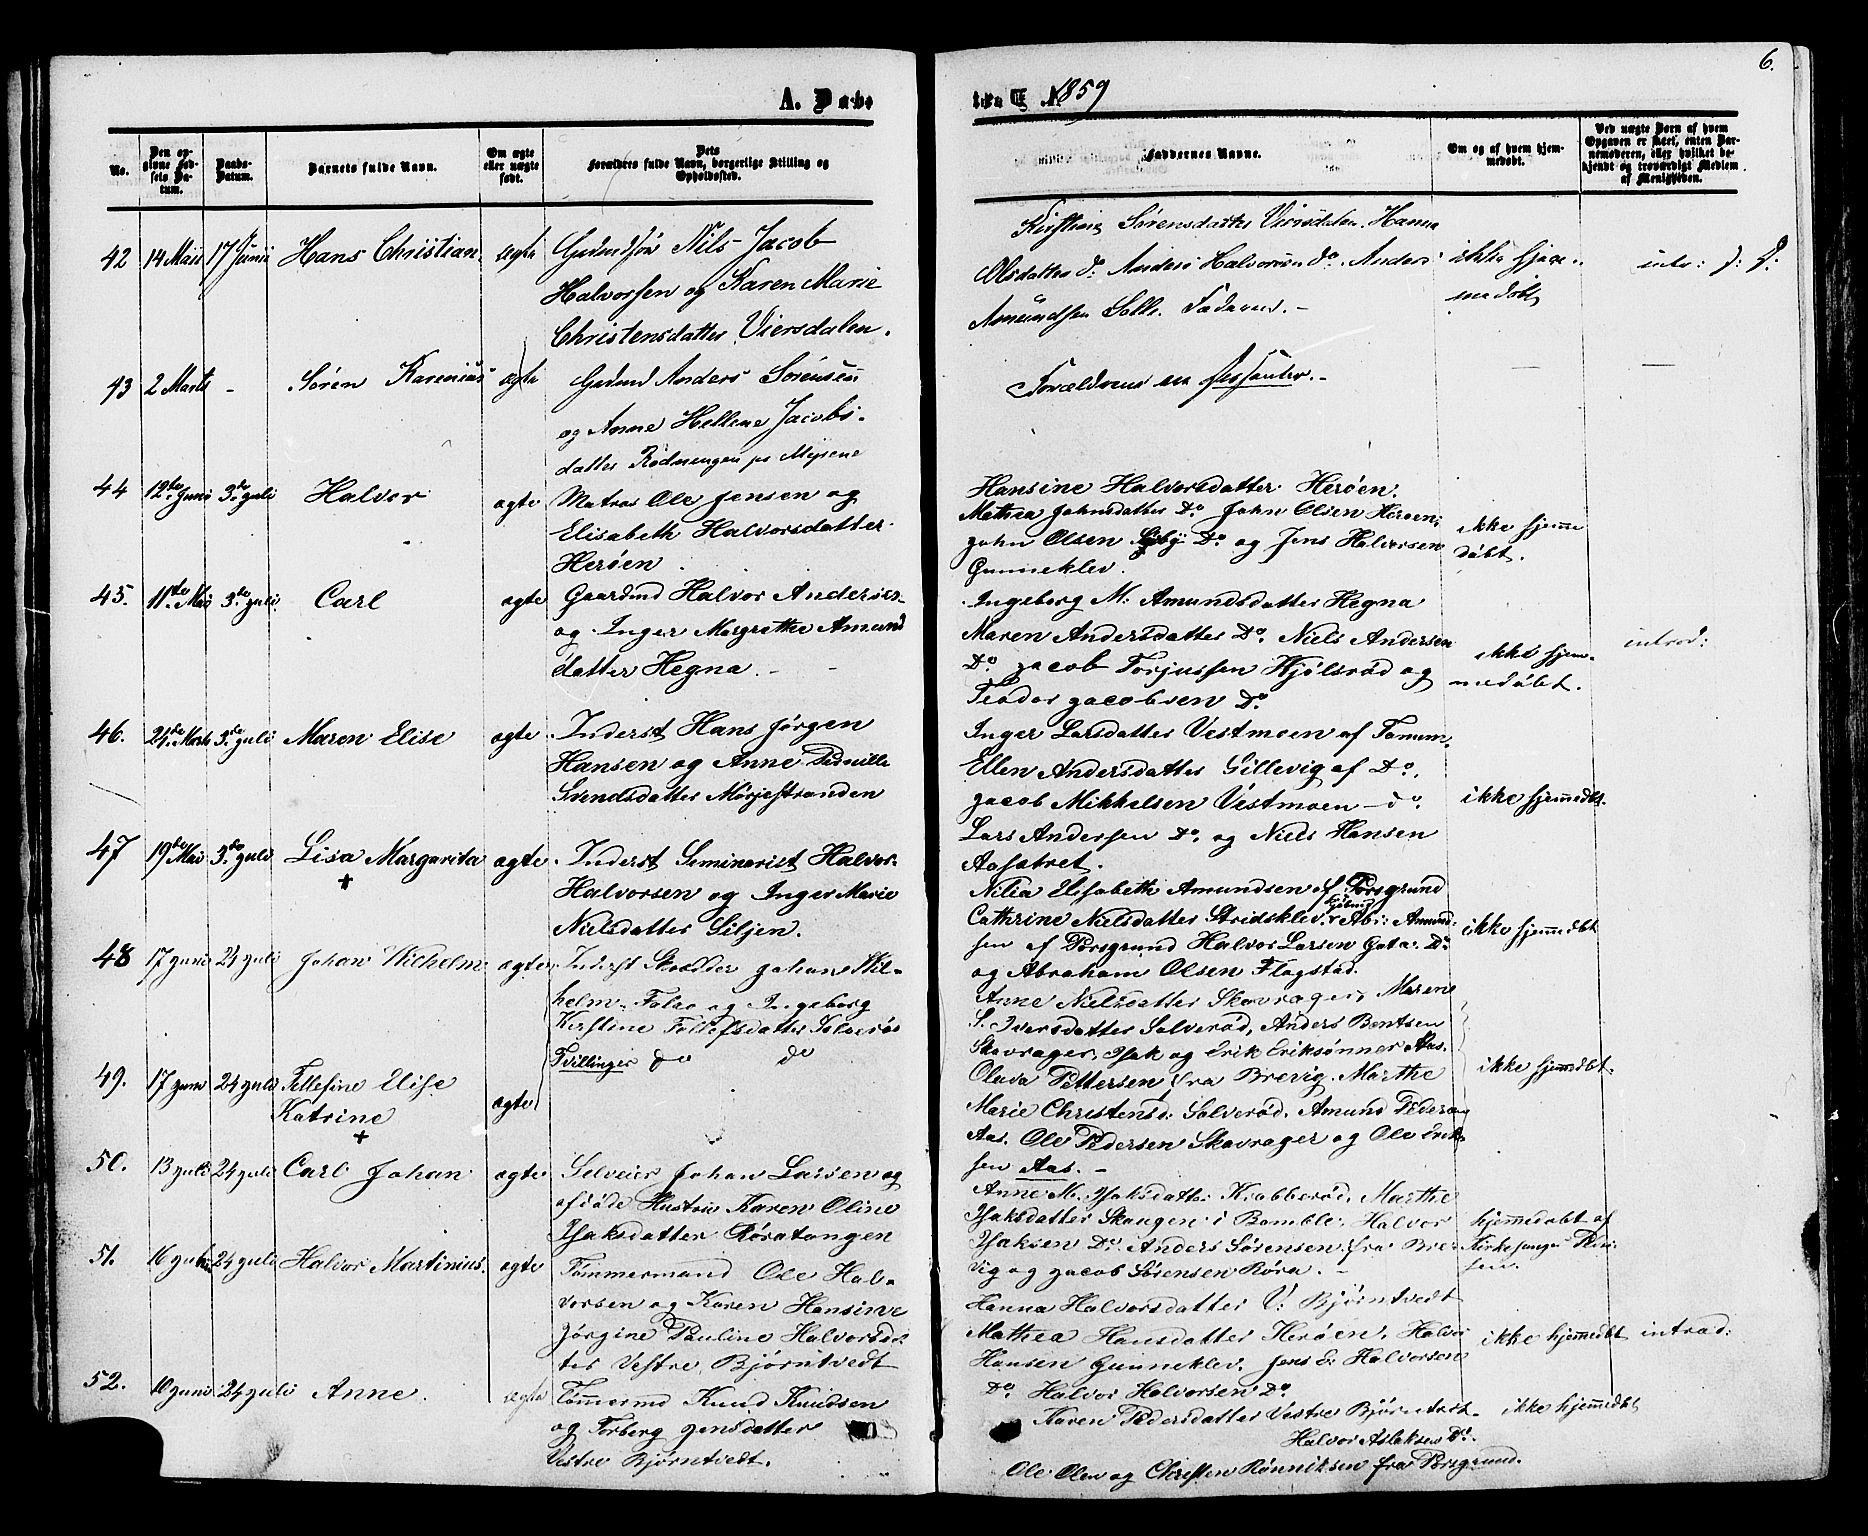 6.
A. Døbte 1859
No.
Den opgivne Fødsels Datum.
Daabs-Datum.
Barnets fulde Navn.
Om ægte eller uægte født.
Dets Forældres fulde Navn, borgerlige Stilling og Opholdssted.
Faddernes Navne.
Om og af hvem hjemmedøbt.
Ved uægte Børn af hvem Opgaven er skeet, enten Barnemoderen, eller hvilket bekjendt og troværdigt Medlem af Menigheden.
42 14 Mai 17 Juni Hans Christian. ægte Nils Jacob
Halvorsen og Karen Marie
Christensdatter Viersdalen.
Kirstine Sørensdatter Viersdalen, Hanna
Olsdatter do: Anders Halvorsen do. Anders
Amundsen Solli. Faderen. -
ikke hjem-
medøbt
intr:
43 2 Marts - Søren Karenius ægte Anders Sørensen
og Anne Hellene Jacobs-
datter Rødningen pr Mysene
Forældrene ere dissenter. -
44 12te Juni 3de Juli Halvor ægte Matros Ole Jensen og
Elisabeth Halvorsdatter
Herøen
Hansine Halvorsdatter Herøen.
Mathea Johnsdatter Do John Olsen Herøen,
John Olsen Do og Jens Halvorsen
Gunneklev.
ikke hjemme
døbt.
45. 11te Mai 3de Juli Carl ægte Gaardmd Halvor Andersen
og Inger Margrethe Amund
datter Hegna. -
Ingeborg M: Amundsdatter Hegna
Maren Andersdatter Do. Niels Andersen
Do. Jacob Torjussen Hjølsrød og
Teodor Jacobsen Do
ikke hjem-
medøbt.
introd:
46. 24de Marts 3de Juli Maren Elise ægte Inderst Hans Jørgen
Hansen og Anne Pernille
Svendsdatter Mørjestranden
Inger Larsdatter Vestmoen af Tanum.
Ellen Andersdatter Gillevig af Do.
Jacob Mikkelsen Vestmoen - do.
Lars Andersen Do. og Niels Hansen
Aasætret.
ikke hjemedbt.
47 19de Mai 3de Juli Lisa Margarita + ægte Inderst Seminarist Halvor
Halvorsen og Inger Marie
Nielsdatter Siljen.
Nilia Elisabeth Amundsen af Porsgrund
Cathrine Nielsdatter Stridsklev. Abr: Amund-
sen af Porsgrund Halvor Larsen Gata. Do.
og Abraham Olsen Flagstad.
ikke hjemedbt
48 17 Juni 24 Juli Johan Wilhelm ægte Inderst Skrædder Johan Wil-
helm False og Ingeborg
Kirstine Tollefsdatter Solverød
Tvillinger do do
Anne Nielsdatter Skavrager, Maren
S. Iversdatter Solverød, Anders Bentsen
Skavrager, Isak og Erik Eriksønner Aas.
49. 17 Juni 24 Juli Tellefine Elise
Katrine + ægte
Olava Pettersen fra Brevig, Marthe
Marie Christensd: Solverød. Amund Pedersen
Aas. Ole Pedersen Skavrager og Ole Erik-
sen Aas. -
ikke hjemedbt.
50. 13 Juli 24 Juli Carl Johan ægte Selveier Johan Larsen og
afdøde Hustru Karen Oline
Isaksdatter Røratangen
Anne M. Isaksdatter Krabberød, Marthe
Isaksdatter Skaugen i Bamble. Halvor
Isaksen Do. Anders Sørensen fra Bre-
vig og Jacob Sørensen Røra. -
hjemedøbt af
Kirkesanger
51. 16 24 Juli Halvor Martinius. ægte Tømmermand Ole Hal-
vorsen og Karen Hansine
Jørgine Pauline Halvorsdt-
ter Vestre Bjørntvedt
Hanna Halvorsdatter V: Bjørntvedt
Mathea Hansdatter Herøen, Halvor
Hansen Gunneklev. Jens S. Halvorsen
Do. Halvor Halvorsen Do
ikke hjemedbt introd:
52. 10 Juni 24 Juli Anne. ægte Tømmermd Knud Knudsen
og Torberg Jensdatter
Vestre Bjørntvedt.
Karen Pedersdatter Vestre Bjørntvet.
Halvor Aslaksen Do.
Ole Olsen og Christen Rønniksen fra Porsgrund.
ikke hjemedbt